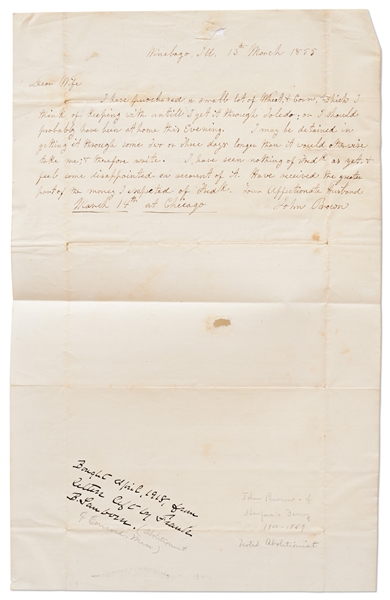 Winebago, Ill. 13th March 1855
Dear Wife
I have purchased a small lot of Wheat, & Corn, which I
think of keeping with untill I get it through Toledo; or I should
probably have been at home this Evening. I may be detained in
getting it through some two or three days longer than it would otherwise
take me; & therefore write. I have seen nothing of Fredk as yet; &
feel some disappointed on account of it. Have received the
part of the money I expected of Fredk. Your Affectionate Husband
March 14th at Chicago John Brown
Bought April, 1918, from
letters left by Frank
B. Sanborn.
of Concord, Mass.)
John Brown of
Harper's Ferry
1800-1859
Noted Abolitionist